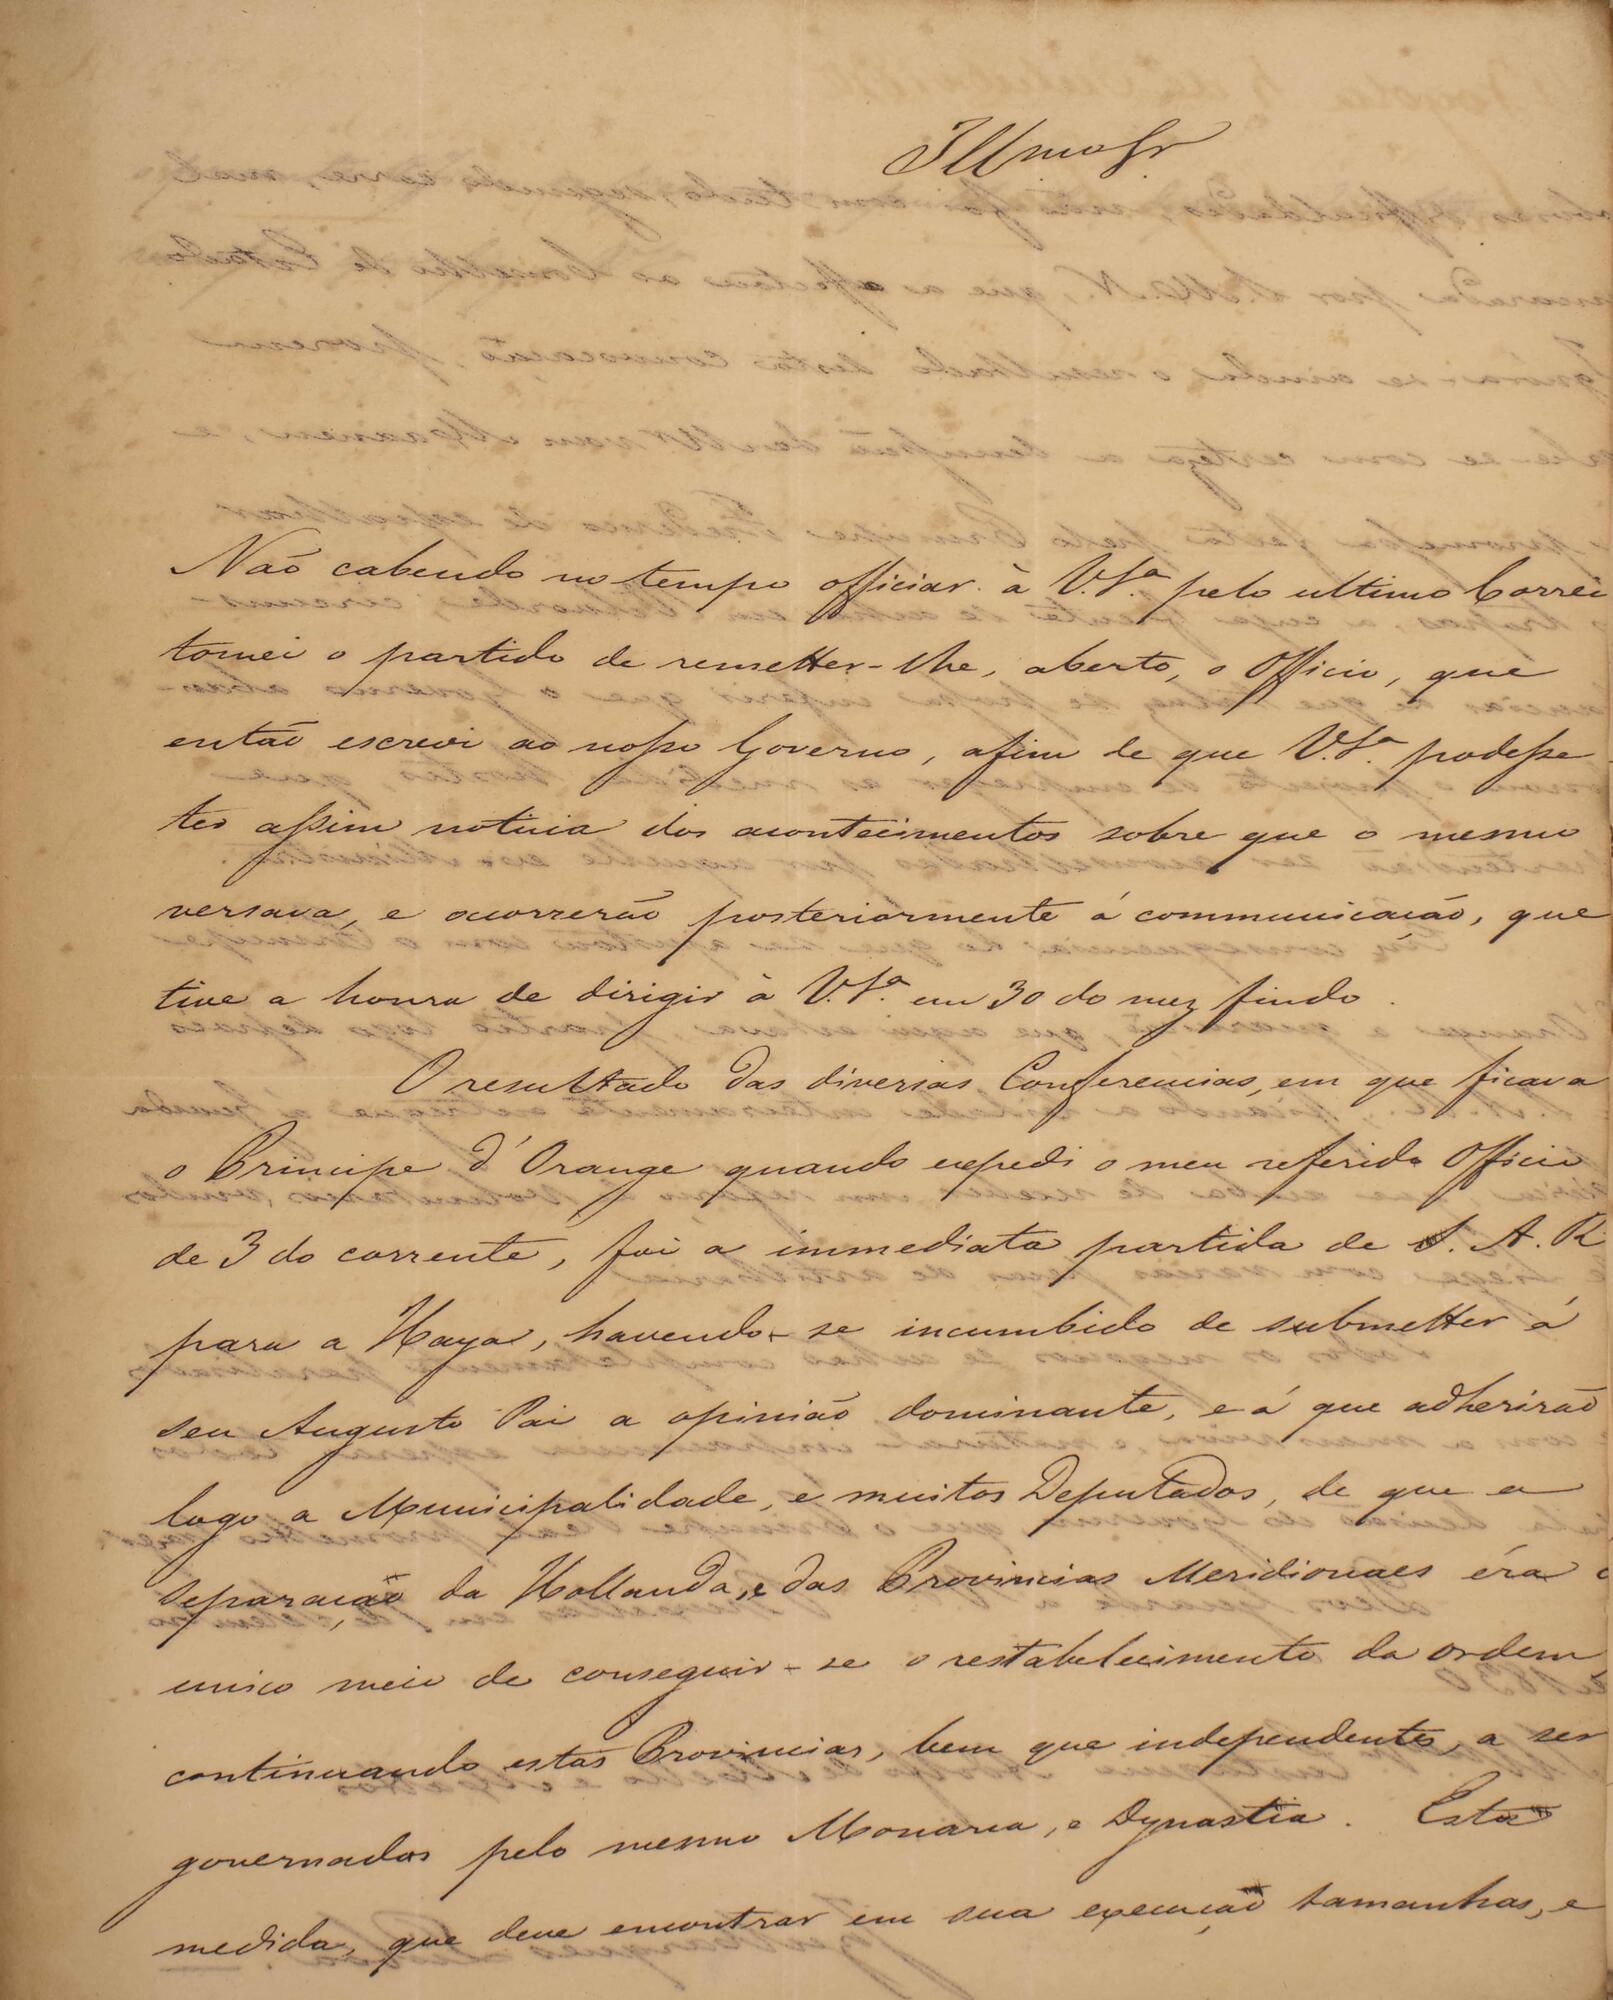 Illmo Sr
Não cabendo no tempo officiar à V.Sª. pelo ultimo Correi
tomei o partido de remetter-lhe, aberto, o Officio, que
então escrevi ao nosso Governo, afim de que V.Sª. podesse
ter assim noticia dos acontecimentos sobre que o mesmo
versava, e ocorrerão posteriormente á communicação, que
tive a honra de dirigir à V.Sª. em 30 do mez findo.
O resultado das diversas Conferencias, em que ficava
o Principe d'Orange quando expedi o meu referido Officio
de 3 do corrente, foi a immediata partida de S. A. R
para a Haya, havendo-se incumbido de submetter á
seu Augusto Pai a opinião dominante, e á que adherirão
logo a Municipalidade, e muitos Deputados, de que a
separação da Hollanda, e das Provincias Meridionaes éra o
unico meio de conseguir-se o restabelecimento da ordem,
continuando estas Provincias, bem que independentes, a ser
governadas pelo mesmo Monarca, e Dynastia. Esta
medida, que deve encontrar em sua execução tamanhas, e